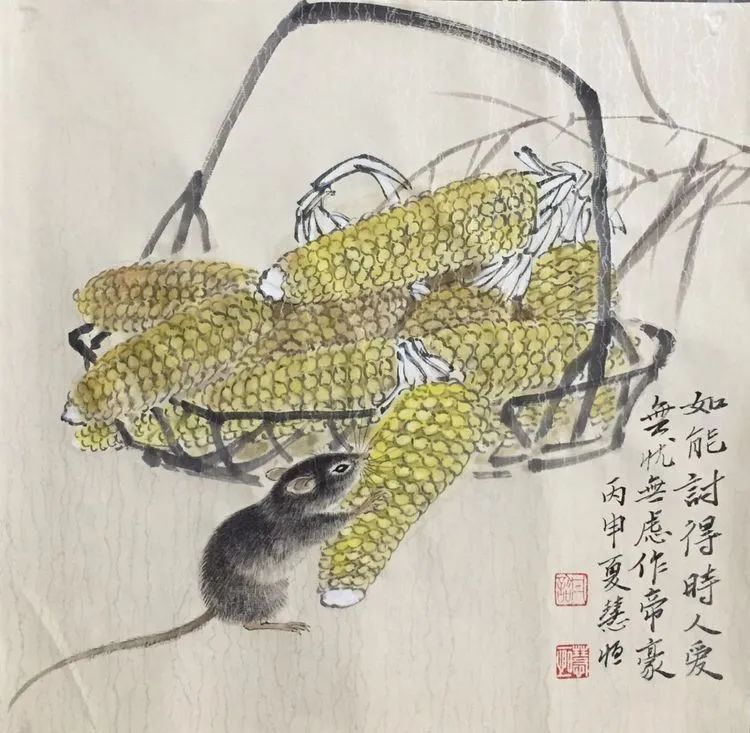 如能討得時人愛
無忧無虑作帝豪
丙申夏慧恒